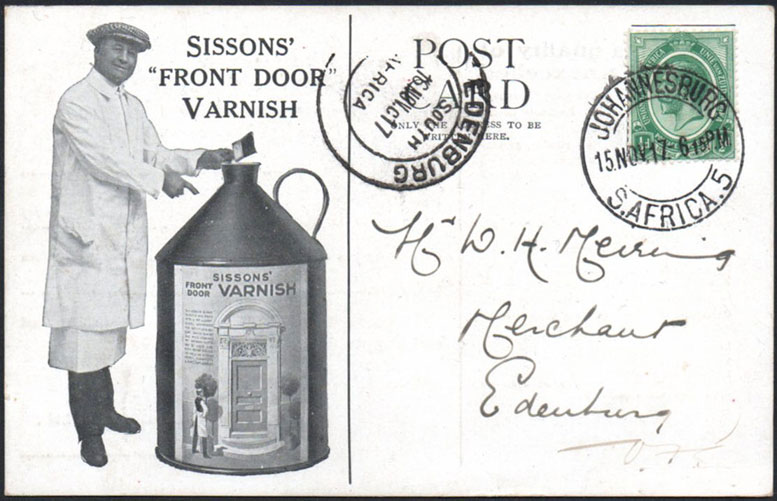 SISSONS'
"FRONT DOOR"
VARNISH
SISSONS'
FRONT
DOOR VARNISH
POST
CARD
ONLY THE ADDRESS TO BE
WRITTEN HERE.
EDENBURG
16 NOV 17
SOUTH
AFRICA
JOHANNESBURG
15 NOV 17 - 6 15 PM
S. AFRICA. 5
Mr W. H. Meiring
Merchant
Edenburg